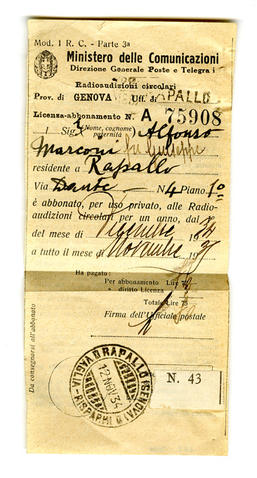 Mod. 1 R. C. - Parte 3ª
Ministero delle Comunicazioni
Direzione Generale Poste e Telegra i
Radioaudizioni circolari
Prov. di GENOVA Uff. di RAPALLO
Licenza-abbonamento N. A 75908
Il Sig. (Nome, cognome e paternità) Alfonso
Marconi fu Giuseppe
residente a Rapallo
Via Dante N. 4 Piano 1º
è abbonato, per uso privato, alle Radio-
audizioni circolari per un anno, dal
del mese di Dicembre 19
a tutto il mese di Novembre 19
Ha pagato:
Per abbonamento Lire
e diritto Licenza
Totale Lire 75
Firma dell'Ufficiale postale
N. 43
RAPALLO (GENOVA)
12 NOV 34
VAGLIA-RISPARMI
Da consegnarsi all'abbonato